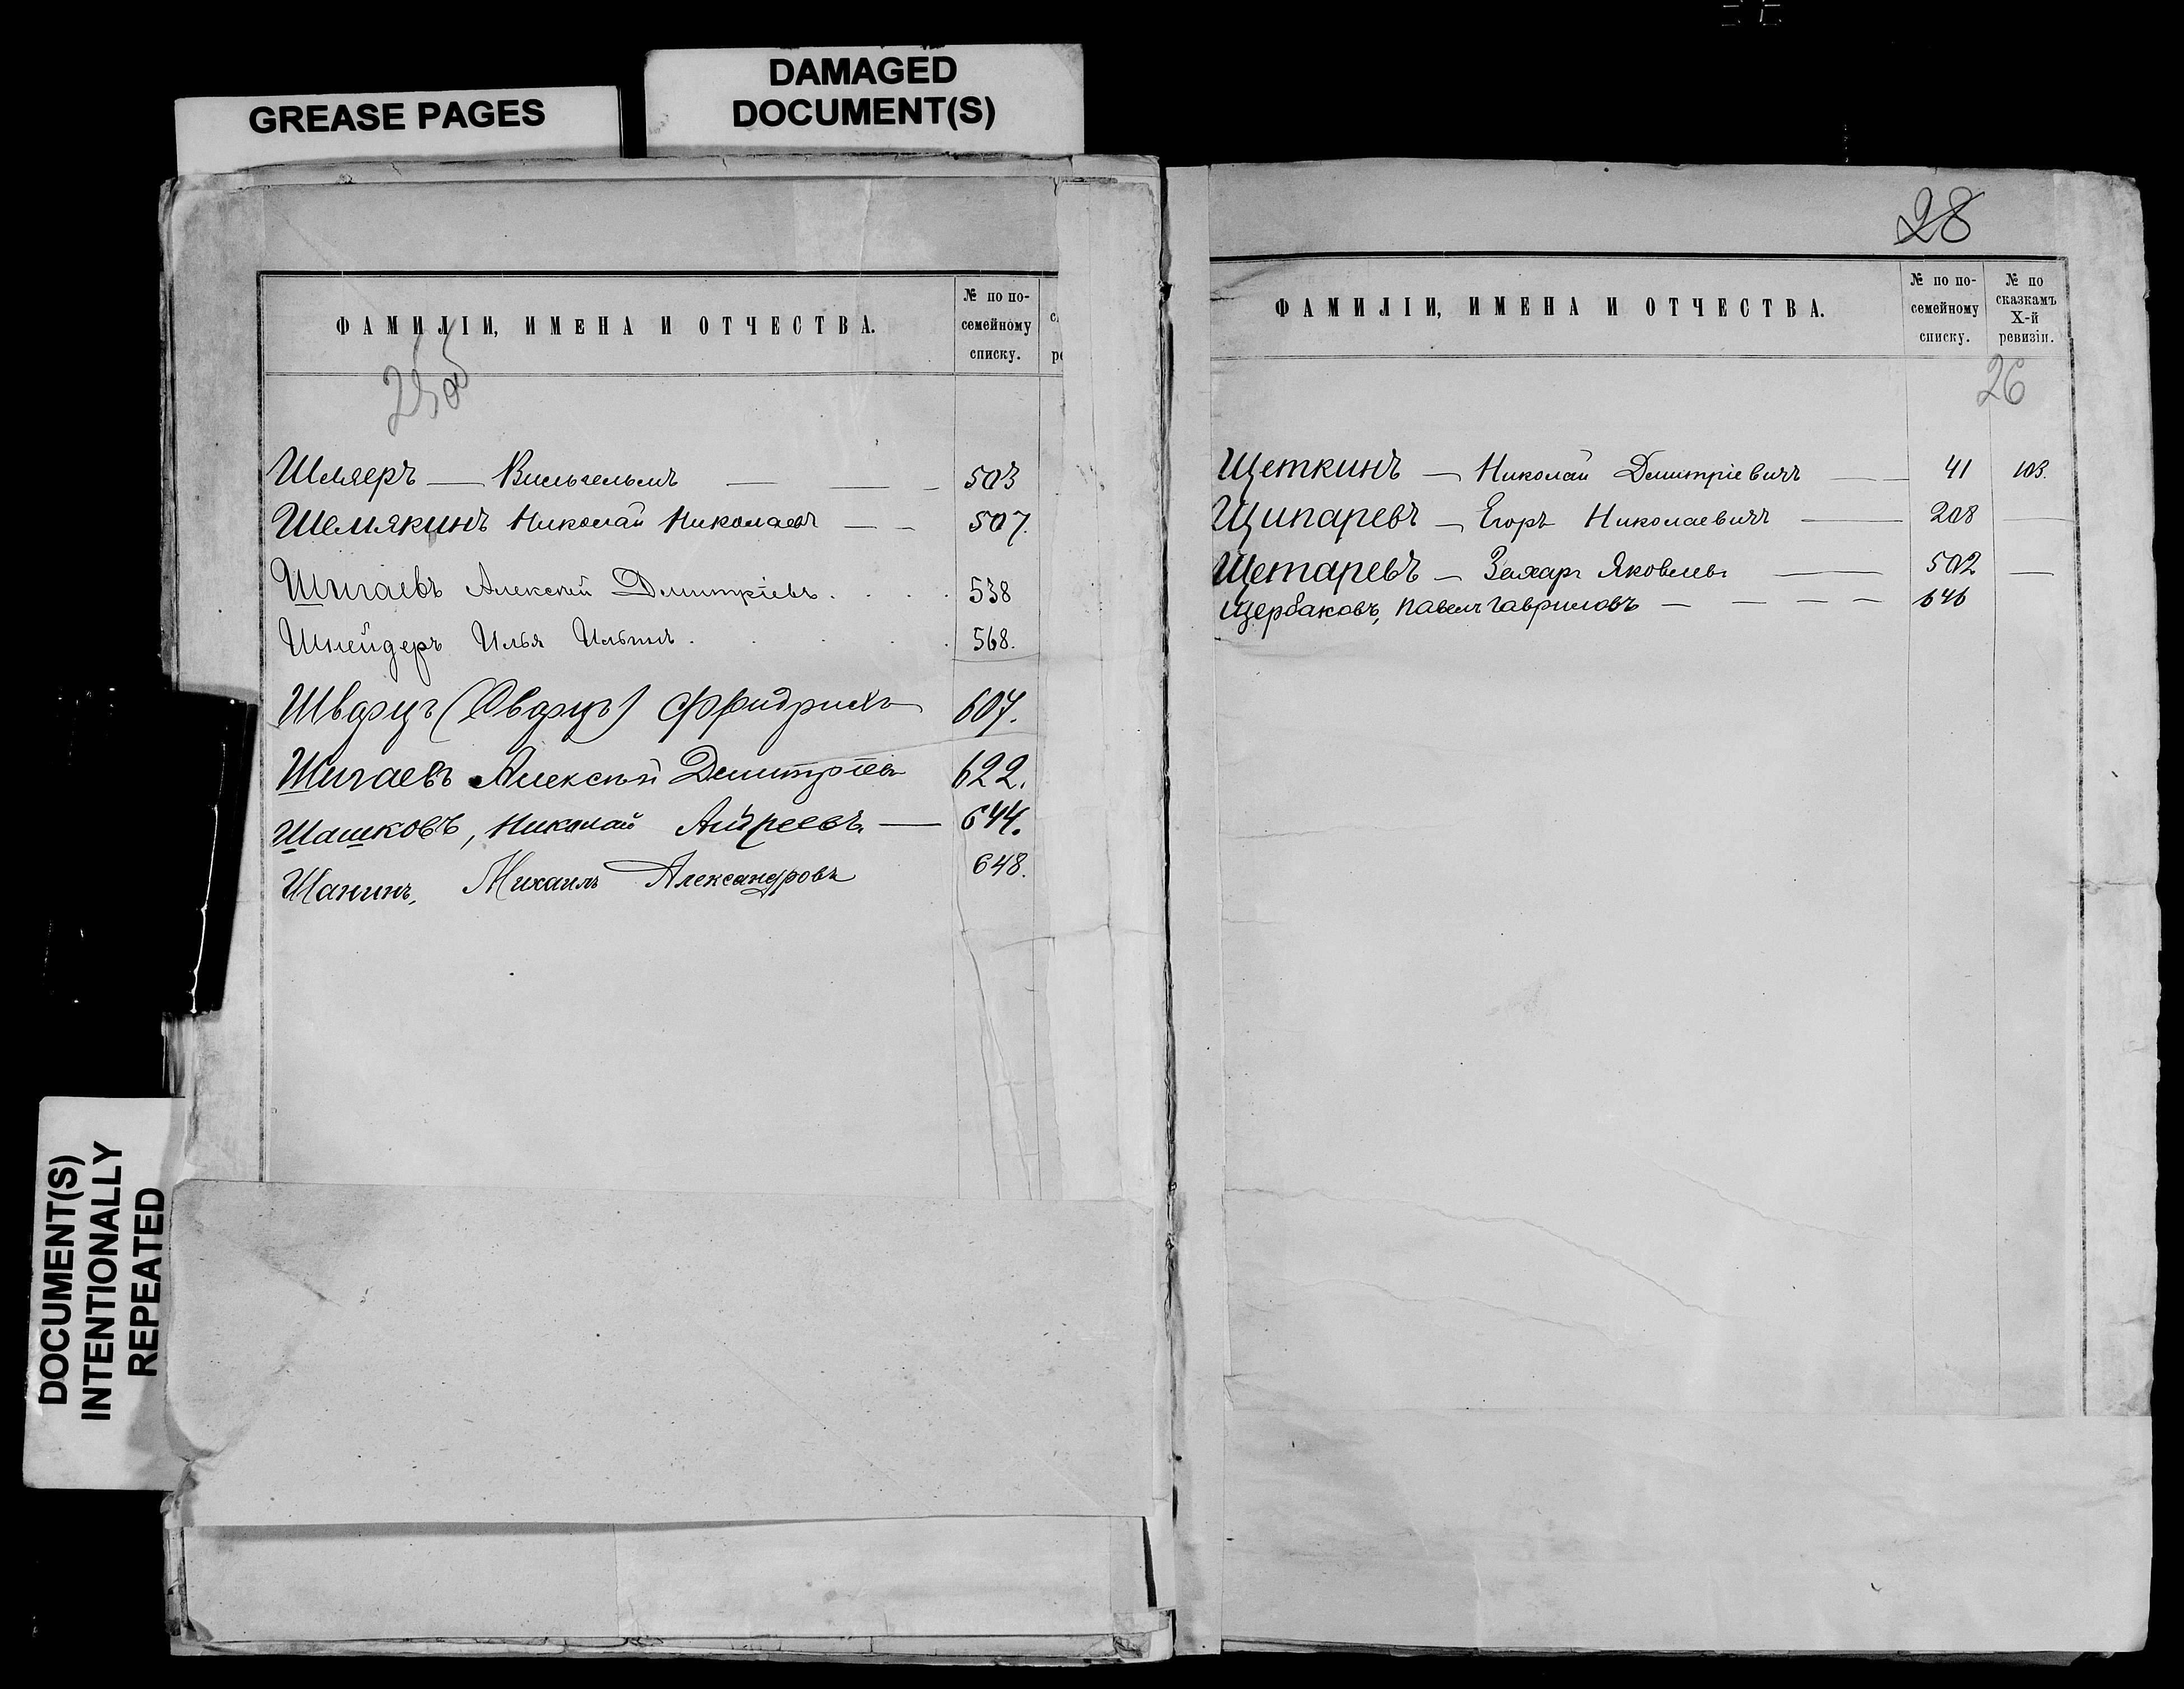 GREASE PAGES
DAMAGED
DOCUMENT(S)
DOCUMENT(S)
INTENTIONALLY
REPEATED
ФАМИЛІИ, ИМЕНА И ОТЧЕСТВА.
№ по по-
семейному
списку.
25 об
Шляеръ — Вильгельмъ — — — 503
Шемякинъ Николай Николаевъ — — 507.
Шигаевъ Алексѣй Димитріевъ . . . 538
Шнейдеръ Илья Ильинъ . . . . 568.
Шварцъ (Сварцъ) Фридрихъ 607.
Шигаевъ Алексѣй Димитріевъ 622.
Шашковъ, Николай Андреевъ — 644.
Шанинъ, Михаилъ Александровъ 648.
28
ФАМИЛІИ, ИМЕНА И ОТЧЕСТВА.
№ по по-
семейному
списку.
№ по
сказкамъ
X-й
ревизіи.
26
Щеткинъ — Николай Дмитріевичъ — — 41 103.
Щипаревъ — Егоръ Николаевичъ — 208 —
Щетаревъ — Захаръ Яковлевъ — 502 —
Щербаковъ, Павелъ Гавриловъ — — — — 646